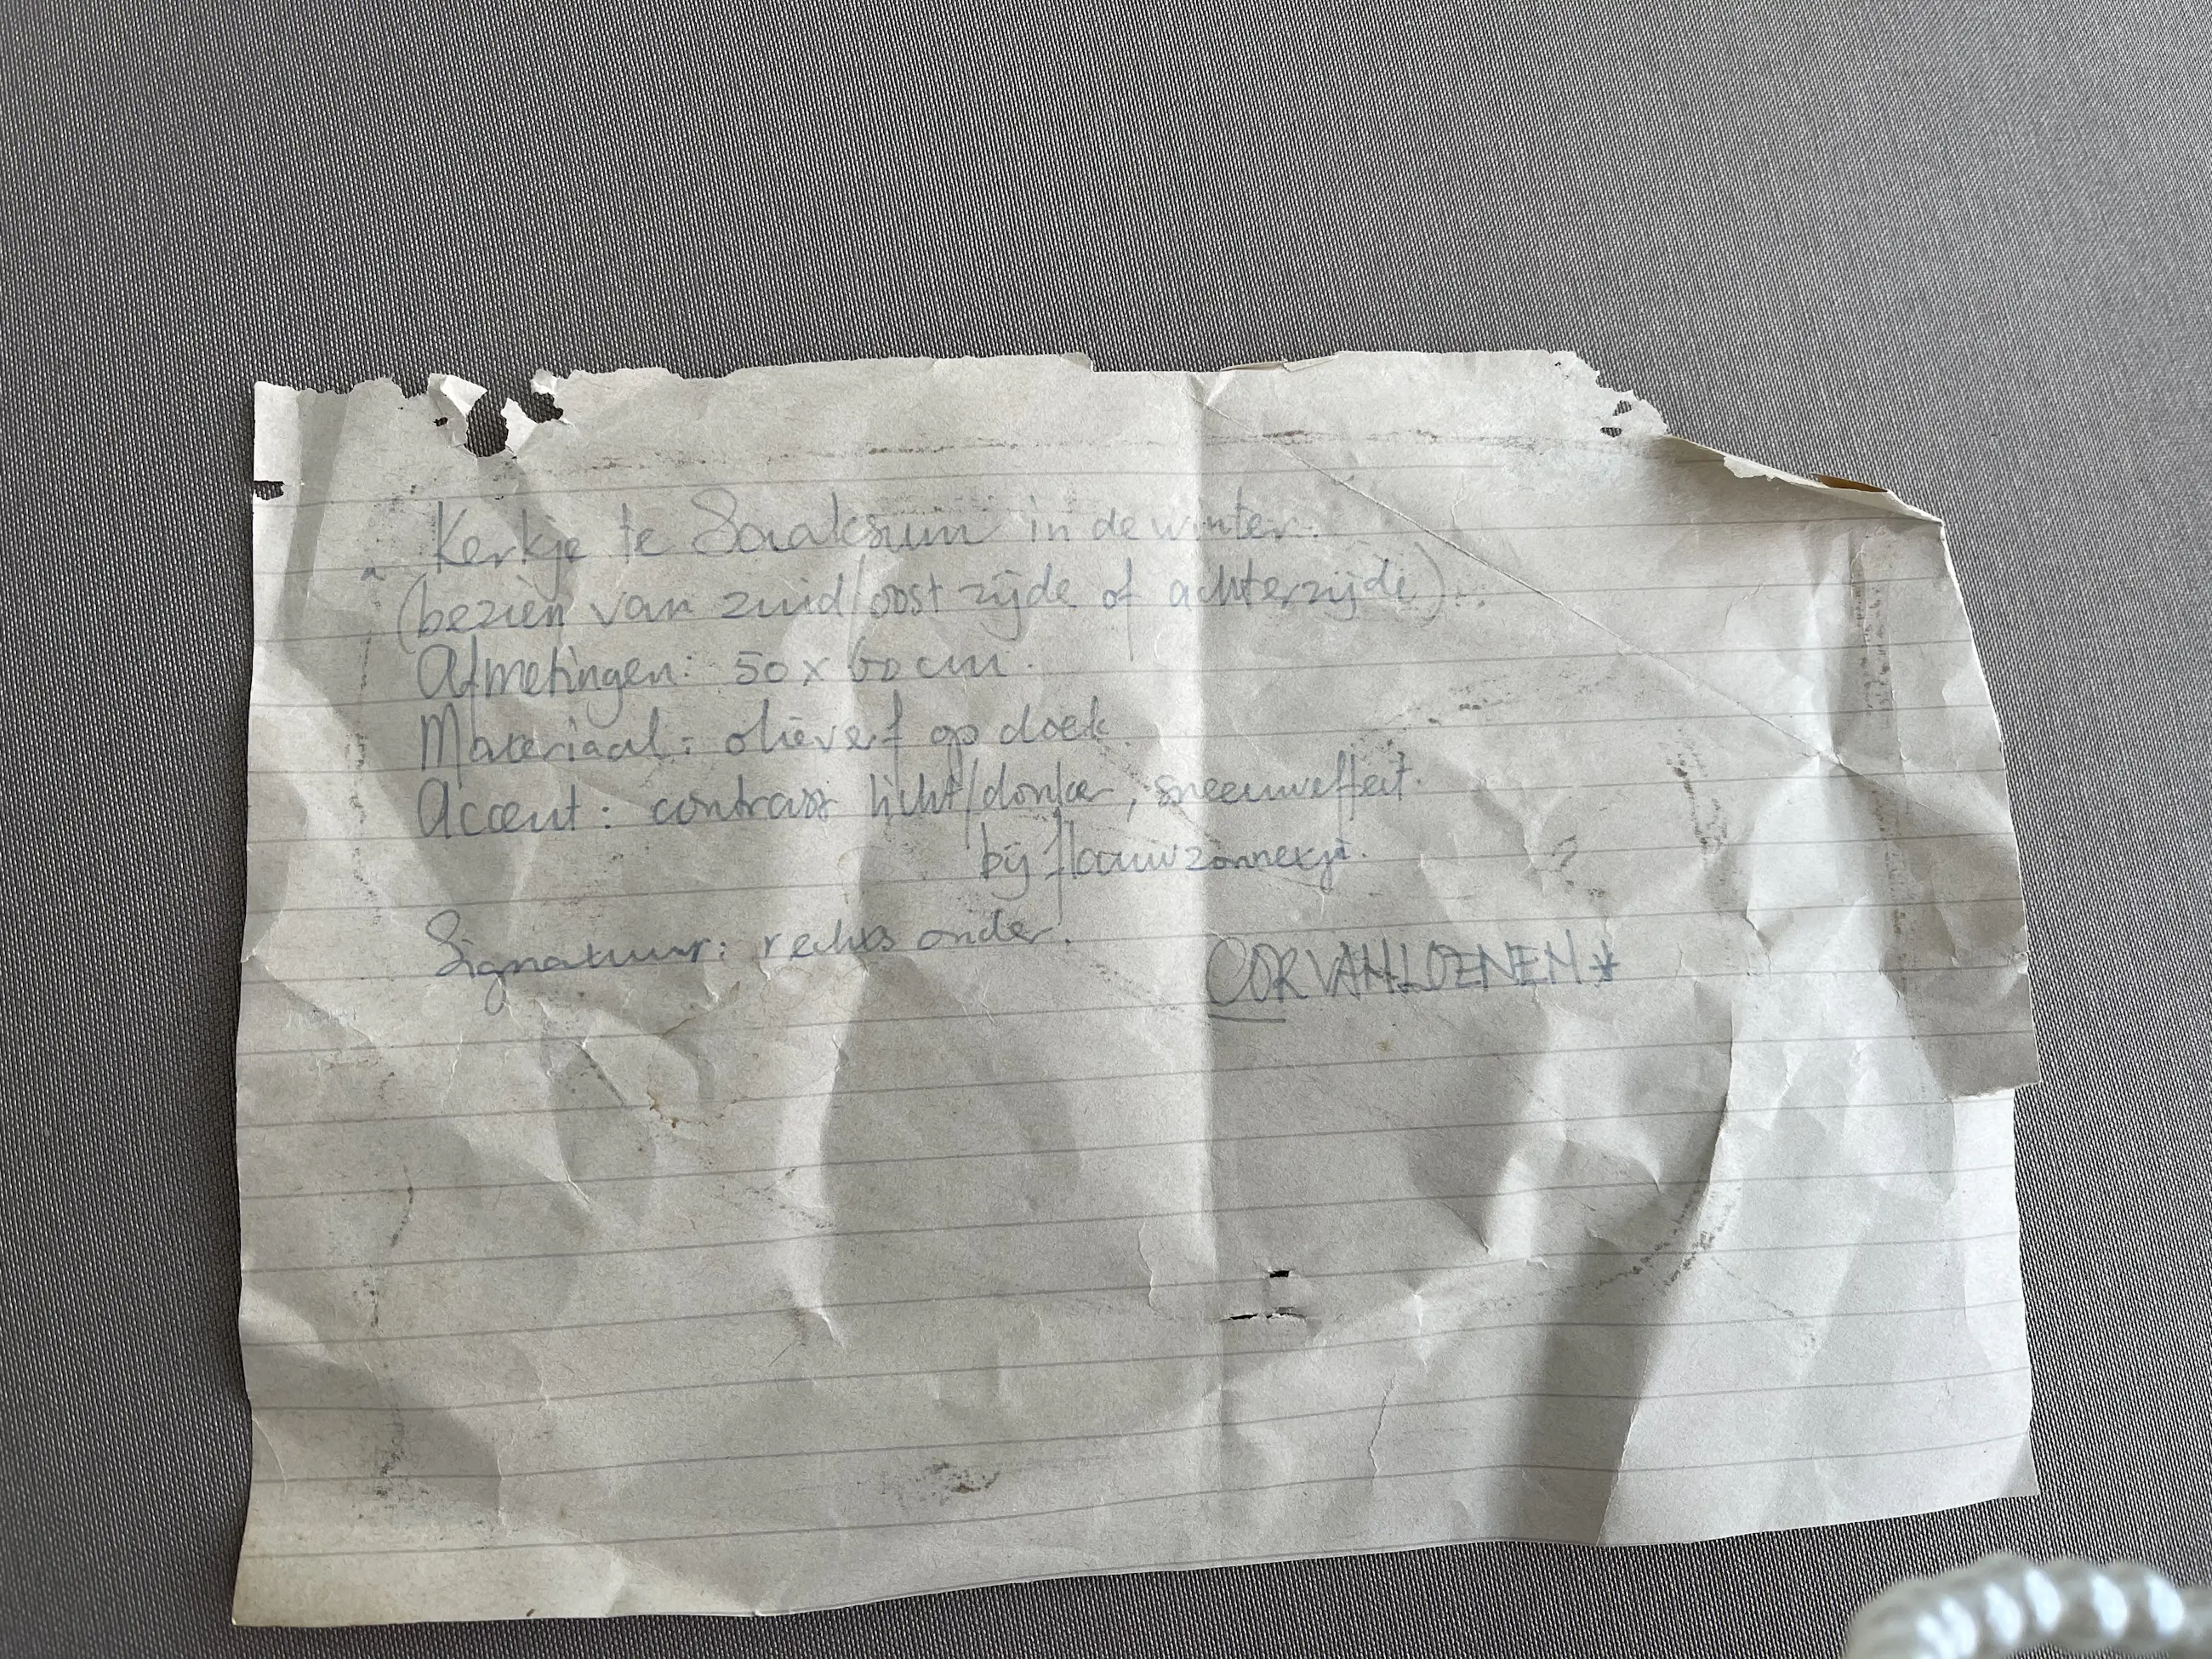 Kerkje te Saaksum in de winter.
(bezien van zuid/oost zijde of achterzijde).
Afmetingen: 50 x 60 cm.
Materiaal: olieverf op doek.
Accent: contrast licht/donker, sneeuweffect.
bij flauw zonnetje.
Signatuur: rechts onder.
COR VAN LOENEN *